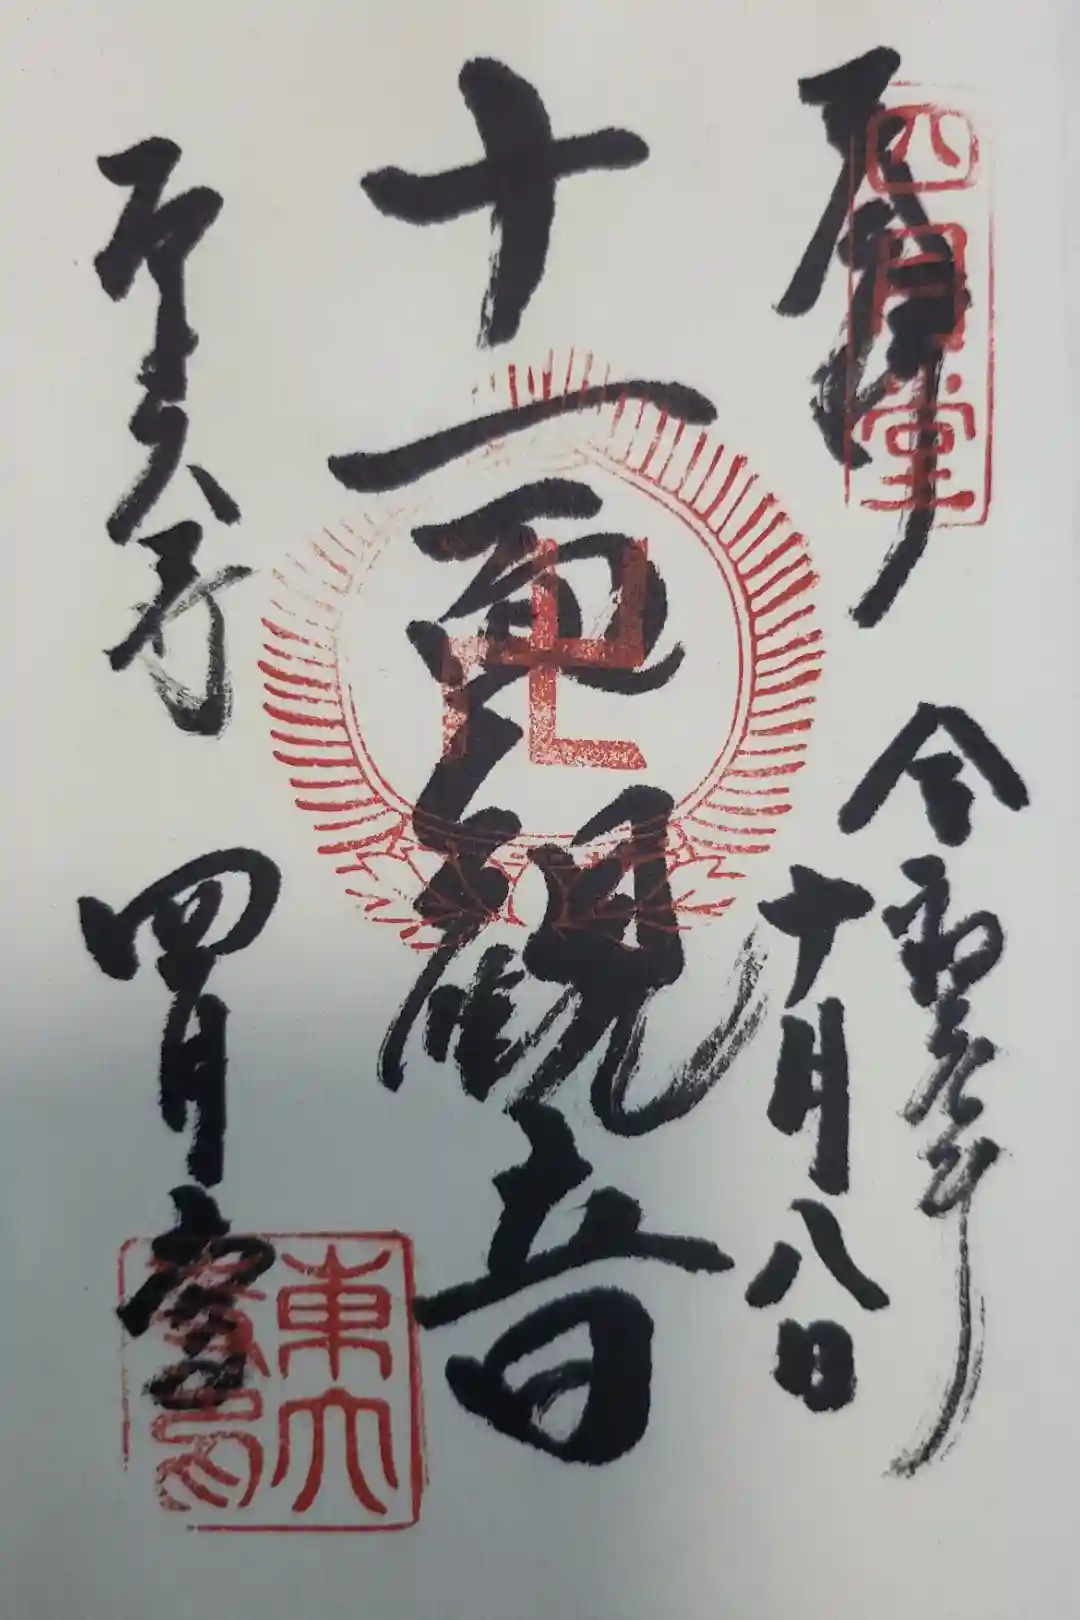 奉拝
四月堂
令和六年
十月八日
十一面観音
東大寺
四月堂
東大